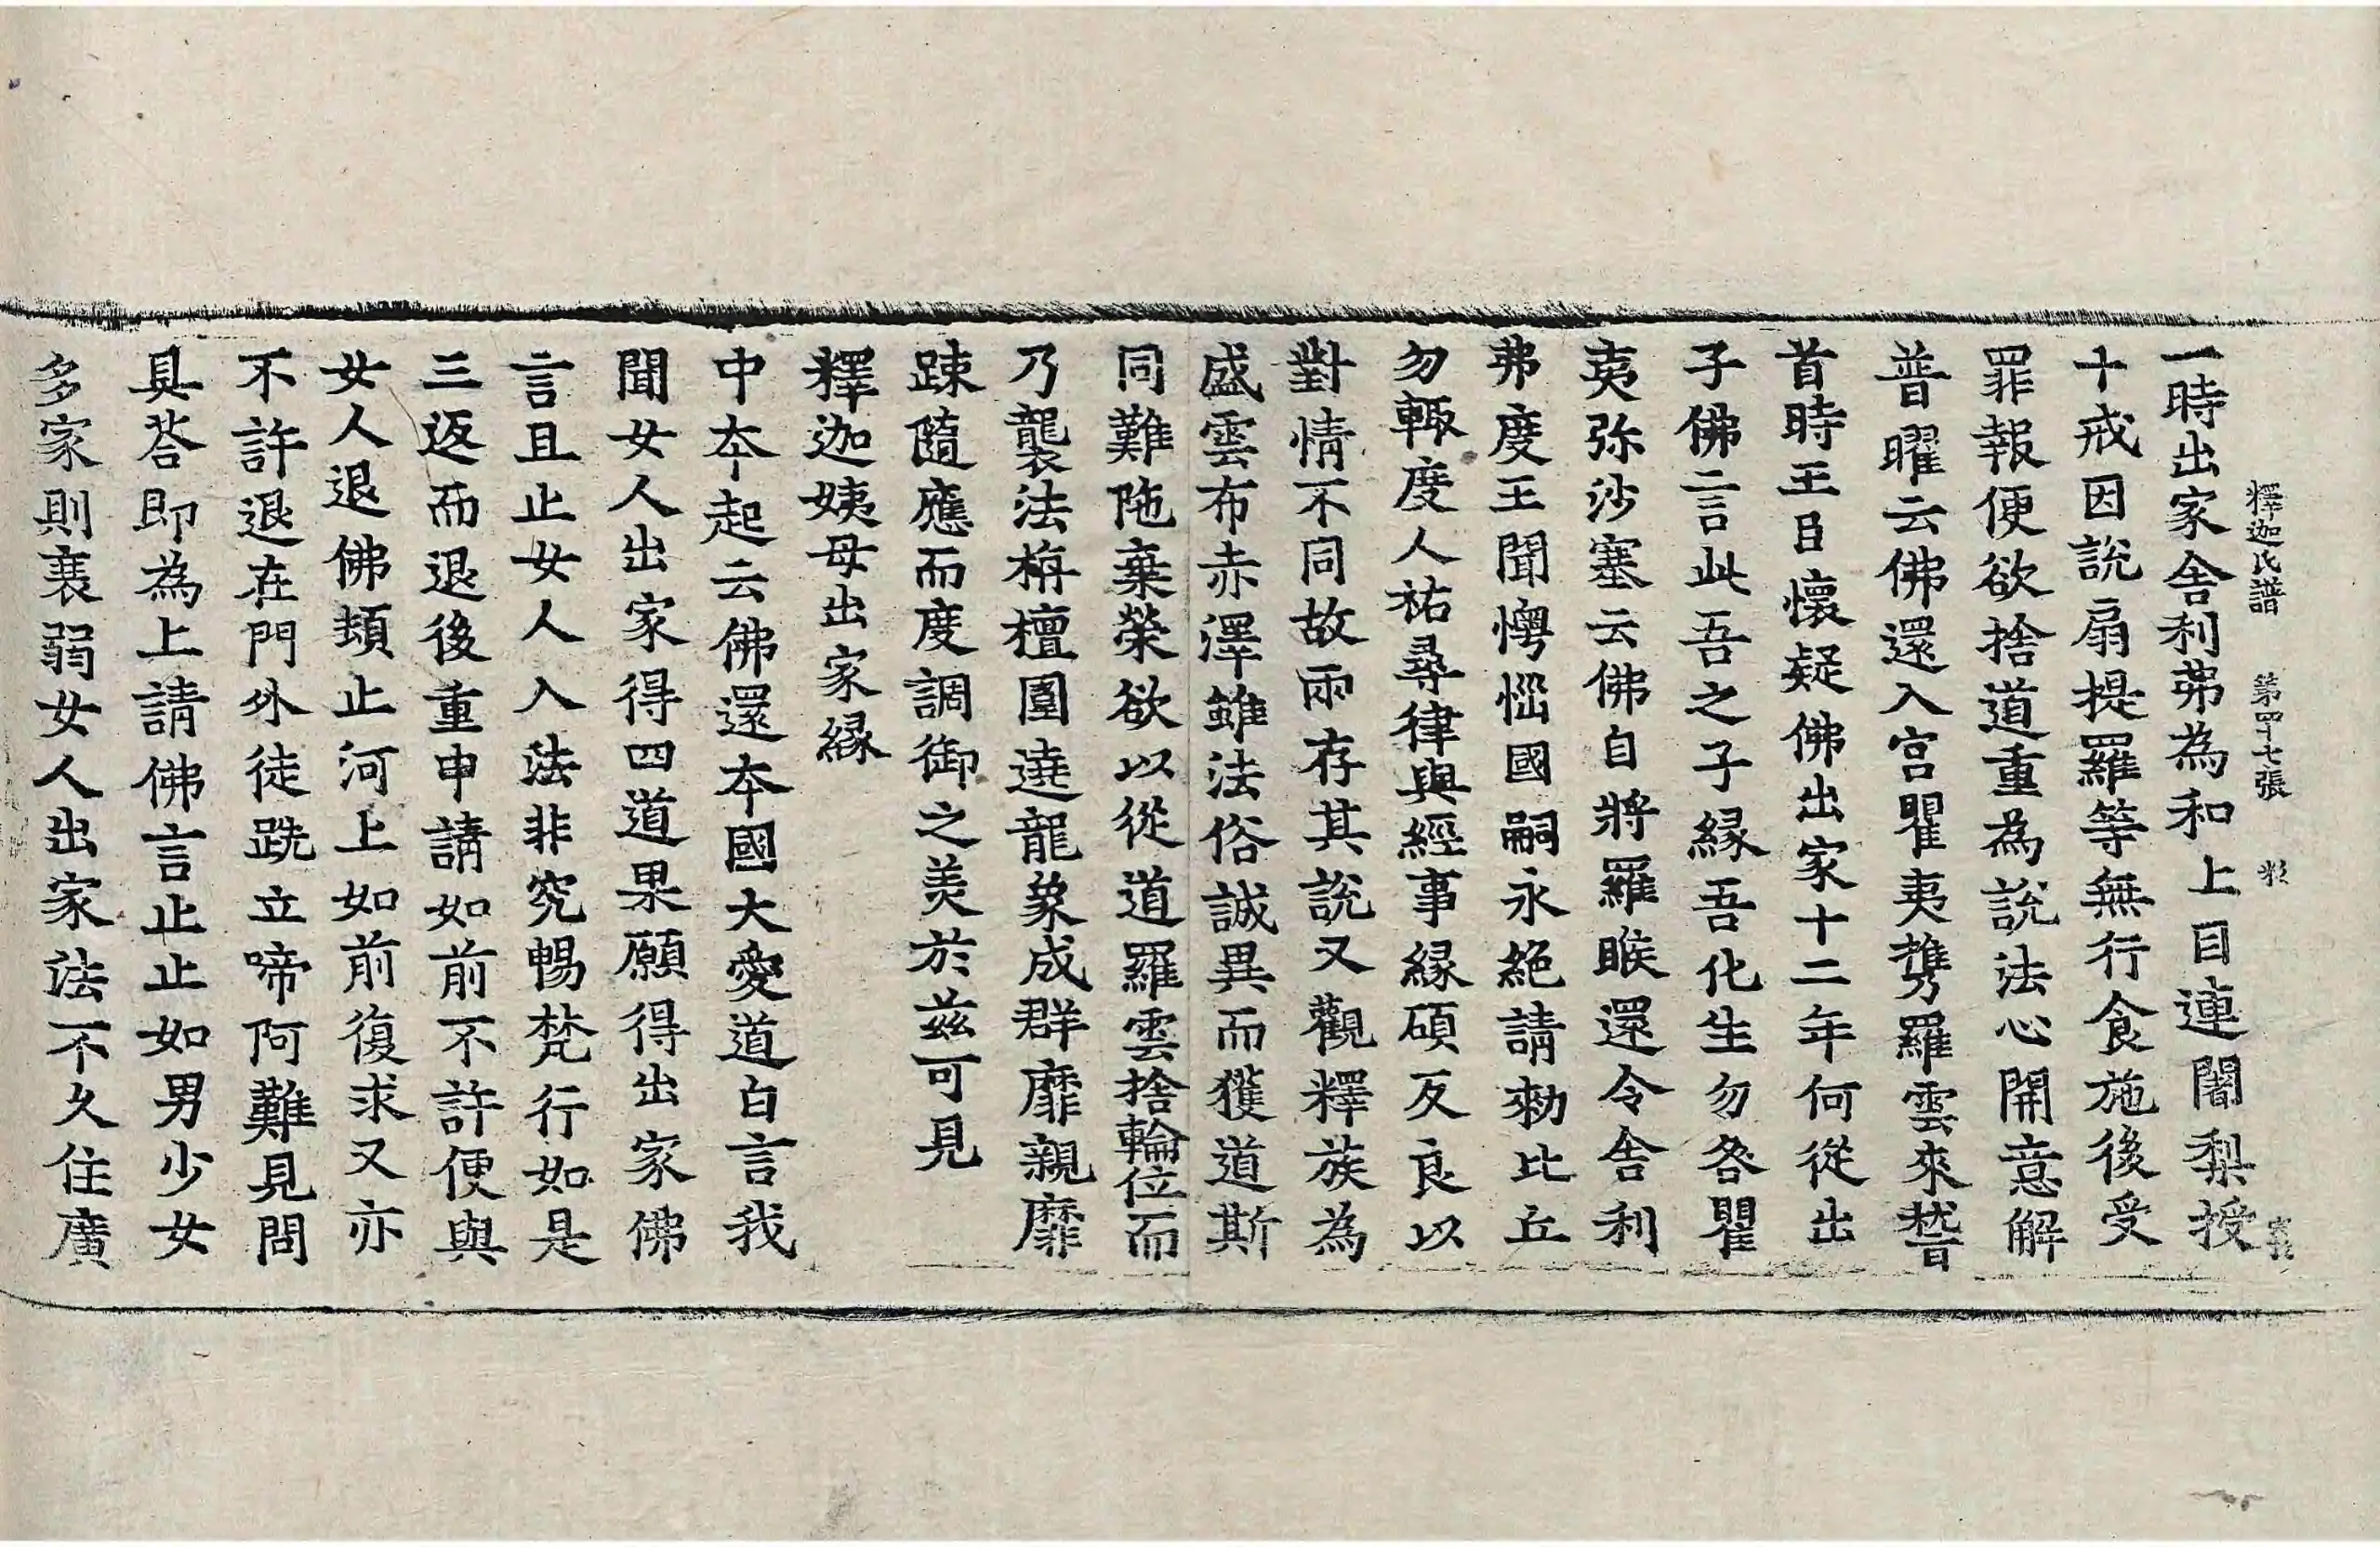 釋迦氏譜 第四十七張
一時出家舍利弗為和上目連闍梨授
十戒因說扇提羅等無行食施後受
罪報便欲捨道重為說法心開意解
普曜云佛還入宮瞿夷攜羅雲來𥡴
首時王臣懷疑佛出家十二年何從出
子佛言此吾之子緣吾化生勿咎瞿
夷弥沙塞云佛自將羅睺還令舍利
弗度王聞懊惱國嗣永絕請勑比丘
勿輙度人祐尋律與經事緣碩反良以
對情不同故兩存其說又觀釋族為
盛雲布赤澤雖法俗誠異而獲道斯
同難陁棄榮欲以從道羅雲捨輪位而
乃襲法栴檀圍遶龍象成群靡親靡
踈隨應而度調御之美於茲可見
釋迦姨母出家緣
中本起云佛還本國大愛道白言我
聞女人出家得四道果願得出家佛
言且止女人入法非究暢梵行如是
三返而退後重申請如前不許便與
女人退佛頓止河上如前復求又亦
不許退在門外徒跣立啼阿難見問
具荅即為上請佛言止止如男少女
多家則衰弱女人出家法不久住廣